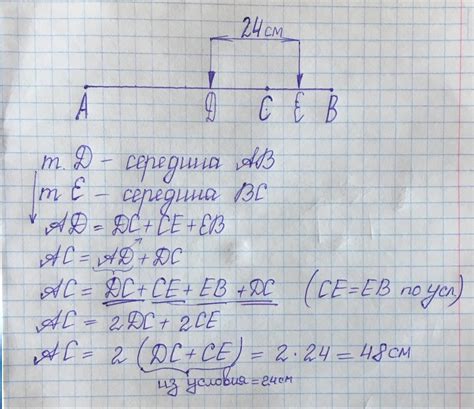 24 см
A D C E B
т. D – середина AB
т E – середина BC
AD = DC + CE + EB
AC = AD + DC
AC = DC + CE + EB + DC (CE = EB по усл)
AC = 2DC + 2CE
AC = 2 (DC + CE) = 2 · 24 = 48 см
из условия = 24 см